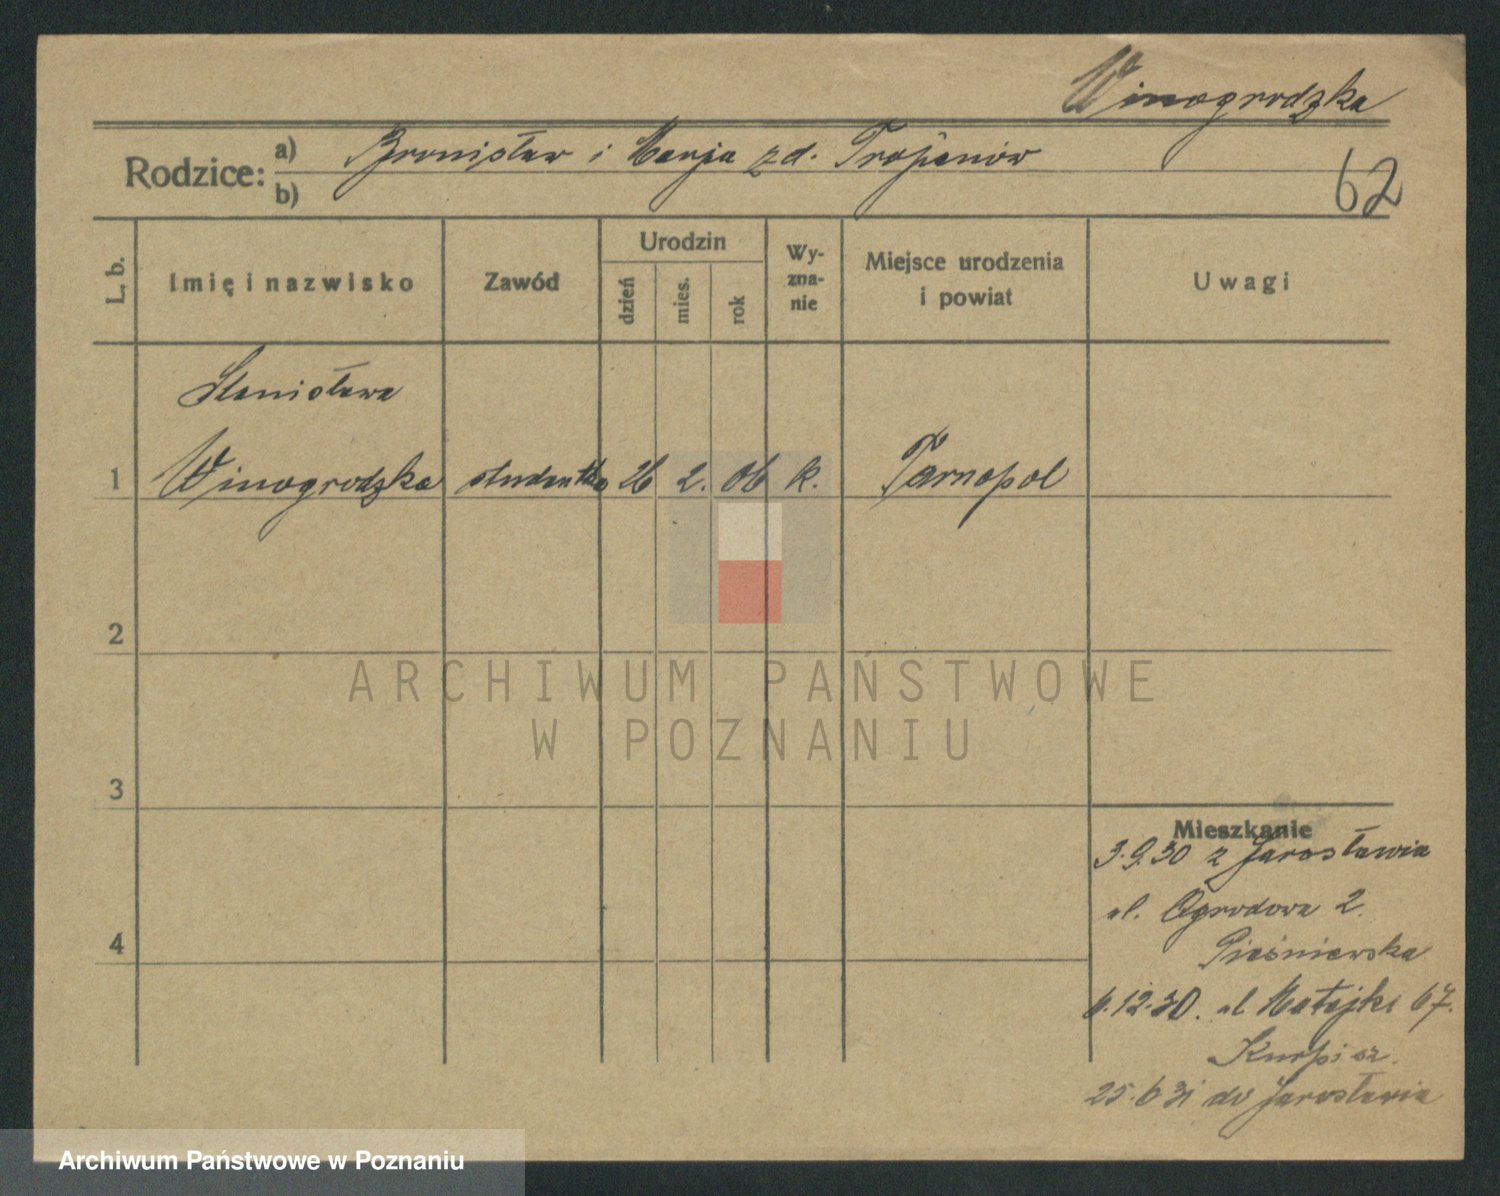 Winogrodzka
Rodzice: a) Bronisław i Marja zd. Trojanów
b)
62
L. b.
Imię i nazwisko
Zawód
Urodzin
dzień
mies.
rok
Wy-
zna-
nie
Miejsce urodzenia
i powiat
Uwagi
Stanisława
1 Winogrodzka studentka 26 2. 06 k. Tarnopol
2
3
4
ARCHIWUM PAŃSTWOWE
W POZNANIU
Mieszkanie
3.9.30 z Jarosławia
ul. Ogrodowa 2.
Pieśniewska
6.12.30. ul Matejki 67.
Kurpisz.
25.6 31 do Jarosławia
Archiwum Państwowe w Poznaniu